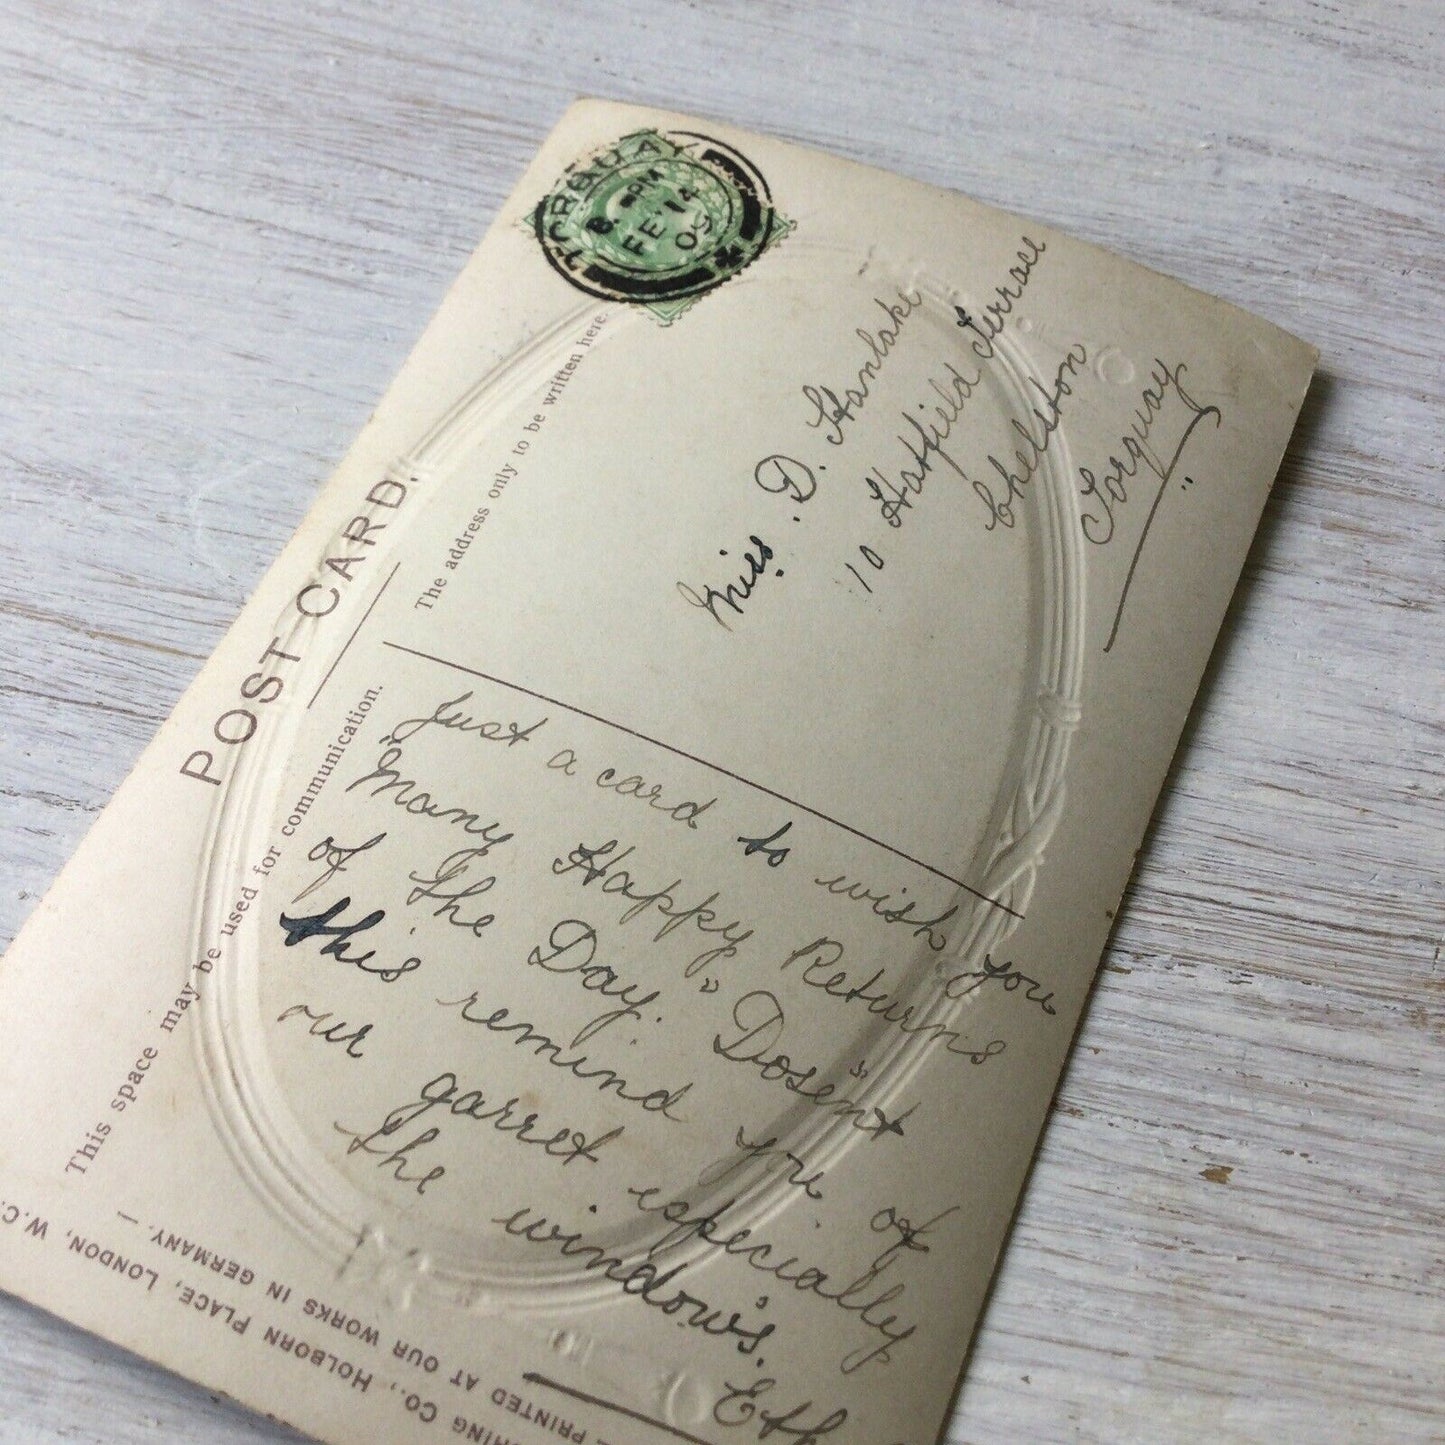 TORQUAY
8. PM
FE 14
09
POST CARD.
The address only to be written here.
Miss. D. Hanlake
10 Hatfield Terrace
Chelston
Torquay
This space may be used for communication.
Just a card to wish you
"Many Happy Returns
of the Day." Dose'nt
this remind you of
our garret especially
the window's.
Eth
HOLBORN PLACE, LONDON, W.C.
PRINTED AT OUR WORKS IN GERMANY.